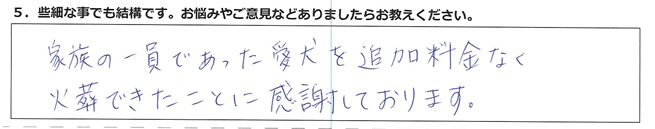 5．些細な事でも結構です。お悩みやご意見などありましたらお教えください。
家族の一員であった愛犬を追加料金なく
火葬できたことに感謝しております。